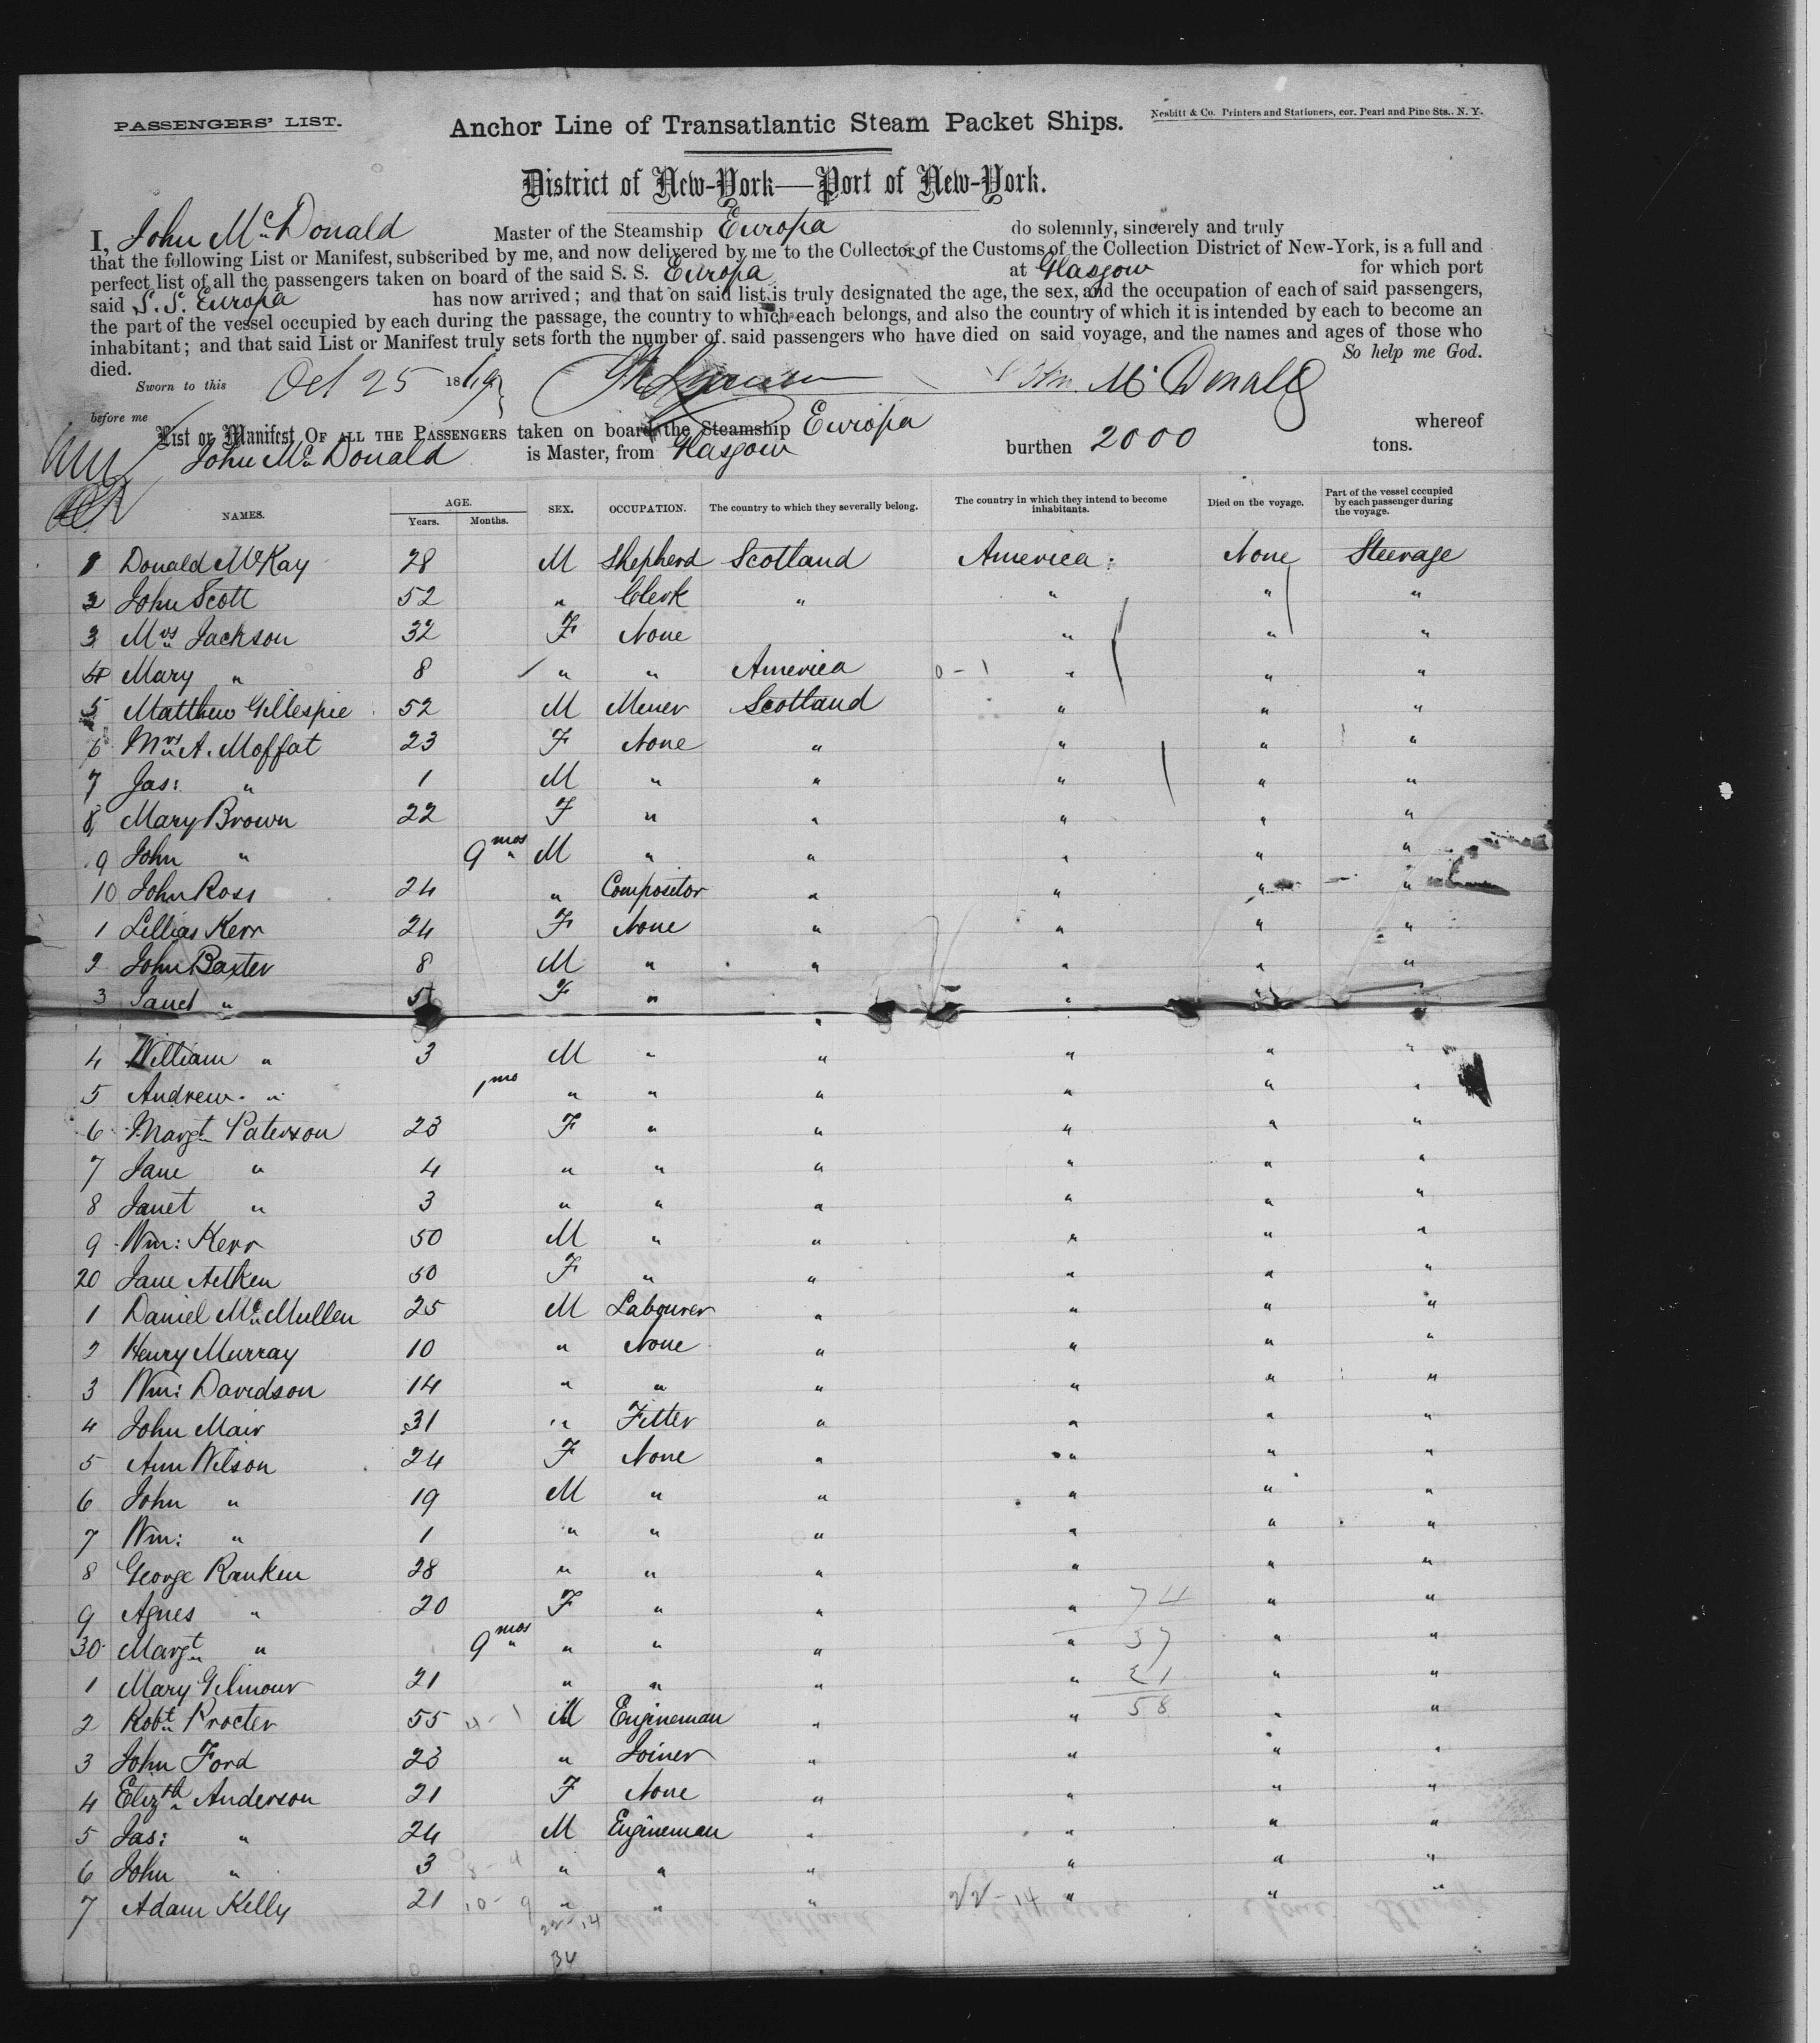 PASSENGERS' LIST.
Anchor Line of Transatlantic Steam Packet Ships.
Nesbitt & Co. Printers and Stationers, cor. Pearl and Pine Sts., N. Y.
District of New-York—Port of New-York.
I, John McDonald Master of the Steamship Europa do solemnly, sincerely and truly
that the following List or Manifest, subscribed by me, and now delivered by me to the Collector of the Customs of the Collection District of New-York, is a full and
perfect list of all the passengers taken on board of the said S. S. Europa at Glasgow for which port
said S.S. Europa has now arrived; and that on said list is truly designated the age, the sex, and the occupation of each of said passengers,
the part of the vessel occupied by each during the passage, the country to which each belongs, and also the country of which it is intended by each to become an
inhabitant; and that said List or Manifest truly sets forth the number of said passengers who have died on said voyage, and the names and ages of those who
died. So help me God.
Sworn to this Oct 25 1869 McDonald
before me
List or Manifest OF ALL THE PASSENGERS taken on board the Steamship Europa whereof
John McDonald is Master, from Glasgow burthen 2000 tons.
NAMES. AGE. Years. Months. SEX. OCCUPATION. The country to which they severally belong. The country in which they intend to become inhabitants. Died on the voyage. Part of the vessel occupied by each passenger during the voyage.
1 Donald McKay 28 M Shepherd Scotland America None Steerage
2 John Scott 52 " Clerk " " " "
3 Mrs Jackson 32 F None " " "
4 Mary " 8 " " America 0-1 " " "
5 Matthew Gillespie 52 M Miner Scotland " " "
6 Mrs A. Moffat 23 F None " " " "
7 Jas: " 1 M " " " " "
8 Mary Brown 22 F " " " " "
9 John " 9 mos M " " " " "
10 John Ross 24 " Compositor " " " "
1 Lillias Kerr 24 F None " " " "
2 John Baxter 8 M " " " " "
3 Janet " 5 F " " " " "
4 William " 3 M " " " " "
5 Andrew " 1 mo " " " " " "
6 Margt Paterson 23 F " " " " "
7 Jane " 4 " " " " " "
8 Janet " 3 " " " " " "
9 Wm: Kerr 50 M " " " " "
20 Jane Aitken 50 F " " " " "
1 Daniel McMullen 25 M Labourer " " " "
2 Henry Murray 10 " None " " " "
3 Wm: Davidson 14 " " " " " "
4 John Mair 31 " Fitter " " " "
5 Ann Wilson 24 F None " " " "
6 John " 19 M " " " " "
7 Wm: " 1 " " " " " "
8 George Rankin 28 " " " " " "
9 Agnes " 20 F " " " 74 " "
30 Margt " 9 mos " " " " 37 " "
1 Mary Gilmour 21 " " " " 21 " "
2 Robt Procter 55 M Engineman " " 58 " "
3 John Ford 23 " Joiner " " " "
4 Elizth Anderson 21 F None " " " "
5 Jas: " 24 M Engineman " " " "
6 John " 3 8-4 " " " " " "
7 Adam Kelly 21 10-9 " " " 22-14 " " "
22-14
34